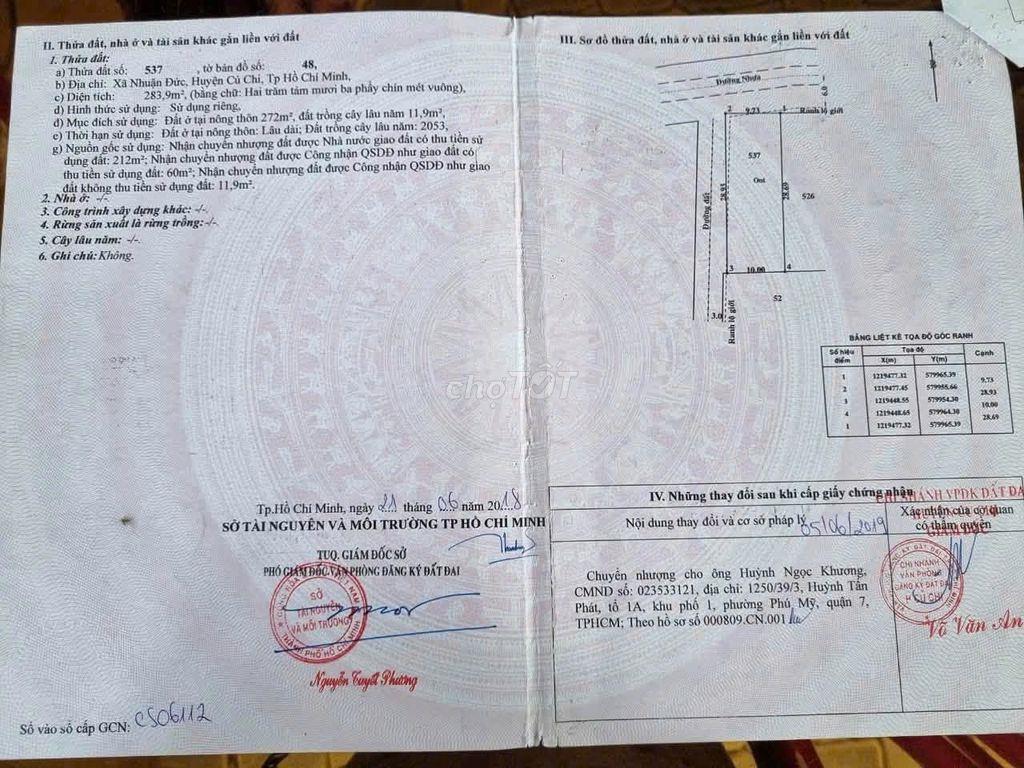 II. Thửa đất, nhà ở và tài sản khác gắn liền với đất
1. Thửa đất:
a) Thửa đất số: 537 , tờ bản đồ số: 48,
b) Địa chỉ: Xã Nhuận Đức, Huyện Củ Chi, Tp Hồ Chí Minh,
c) Diện tích: 283,9m², (bằng chữ: Hai trăm tám mươi ba phẩy chín mét vuông),
d) Hình thức sử dụng: Sử dụng riêng,
đ) Mục đích sử dụng: Đất ở tại nông thôn 272m², đất trồng cây lâu năm 11,9m²,
e) Thời hạn sử dụng: Đất ở tại nông thôn: Lâu dài; Đất trồng cây lâu năm: 2053,
g) Nguồn gốc sử dụng: Nhận chuyển nhượng đất được Nhà nước giao đất có thu tiền sử
dụng đất: 212m²; Nhận chuyển nhượng đất được Công nhận QSDĐ như giao đất có
thu tiền sử dụng đất: 60m²; Nhận chuyển nhượng đất được Công nhận QSDĐ như giao
đất không thu tiền sử dụng đất: 11,9m².
2. Nhà ở: -/-
3. Công trình xây dựng khác: -/-.
4. Rừng sản xuất là rừng trồng: -/-
5. Cây lâu năm: -/-
6. Ghi chú: Không.
Tp.Hồ Chí Minh, ngày 21 tháng 06 năm 2018
SỞ TÀI NGUYÊN VÀ MÔI TRƯỜNG TP HỒ CHÍ MINH
TUQ. GIÁM ĐỐC SỞ
PHÓ GIÁM ĐỐC VĂN PHÒNG ĐĂNG KÝ ĐẤT ĐAI
SỞ
TÀI NGUYÊN
VÀ MÔI TRƯỜNG
THÀNH PHỐ HỒ CHÍ MINH
Nguyễn Tuyết Phương
Số vào sổ cấp GCN: CS06112
III. Sơ đồ thửa đất, nhà ở và tài sản khác gắn liền với đất
Đường Nhựa
6.0
2 9.73 1 Ranh lộ giới
537
Ont
28.93
28.69
526
Đường đất
3 10.00 4
52
3.0
Ranh lộ giới
BẢNG LIỆT KÊ TỌA ĐỘ GÓC RANH
Số hiệu điểm Tọa độ Cạnh
X(m) Y(m)
1 1219477.32 579965.39
9.73
2 1219477.45 579955.66
28.93
3 1219448.55 579954.30
10.00
4 1219448.65 579964.30
28.69
1 1219477.32 579965.39
chợTỐT
IV. Những thay đổi sau khi cấp giấy chứng nhận
Nội dung thay đổi và cơ sở pháp lý
05/06/2019
Xác nhận của cơ quan
có thẩm quyền
CHI NHÁNH VPĐK ĐẤT ĐAI
GIÁM ĐỐC
Chuyển nhượng cho ông Huỳnh Ngọc Khương,
CMND số: 023533121, địa chỉ: 1250/39/3, Huỳnh Tấn
Phát, tổ 1A, khu phố 1, phường Phú Mỹ, quận 7,
TPHCM; Theo hồ sơ số 000809.CN.001
CHI NHÁNH
VĂN PHÒNG
ĐĂNG KÝ ĐẤT ĐAI
H. CỦ CHI
Võ Văn An